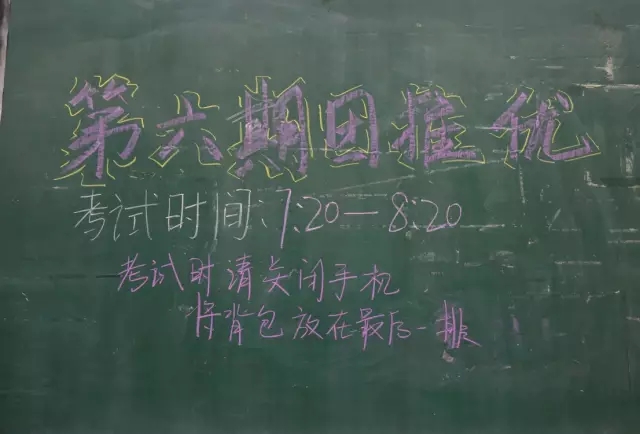 第六期团推优
考试时间:7:20—8:20
考试时请关闭手机
将背包放在最后一排